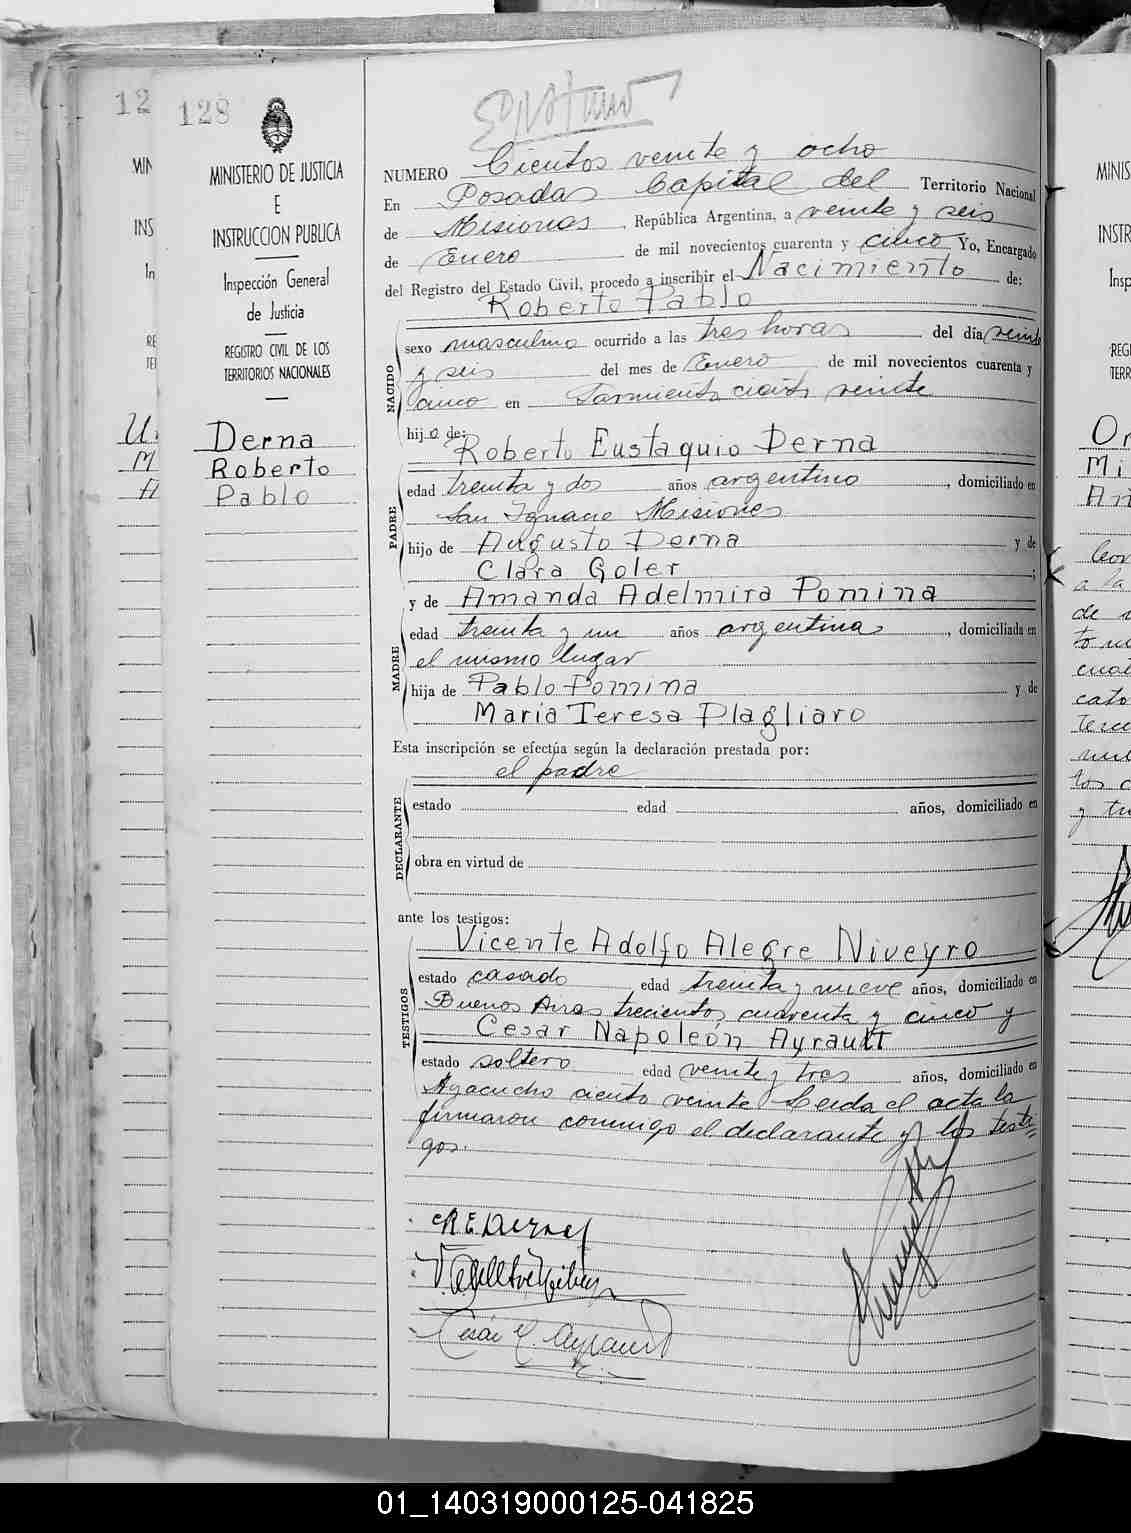 128
MINISTERIO DE JUSTICIA
E
INSTRUCCION PUBLICA
Inspección General
de Justicia
REGISTRO CIVIL DE LOS
TERRITORIOS NACIONALES
Derna
Roberto
Pablo
NUMERO Cientos veinte y ocho
En Posadas Capital del Territorio Nacional
de Misiones, República Argentina, a veinte y seis
de Enero de mil novecientos cuarenta y cinco Yo, Encargado
del Registro del Estado Civil, procedo a inscribir el Nacimiento de:
Roberto Pablo
NACIDO
sexo masculino ocurrido a las tres horas del día veinte
y seis del mes de Enero de mil novecientos cuarenta y
cinco en Sarmiento ciento veinte
hijo de:
Roberto Eustaquio Derna
PADRE
edad treinta y dos años argentino, domiciliado en
San Ignacio Misiones
hijo de Augusto Derna y de
Clara Goler;
y de Amanda Adelmira Pomina
MADRE
edad treinta y un años argentina, domiciliada en
el mismo lugar
hija de Pablo Pomina y de
Maria Teresa Plagliaro
Esta inscripción se efectúa según la declaración prestada por:
el padre
DECLARANTE
estado edad años, domiciliado en
obra en virtud de
ante los testigos:
Vicente Adolfo Alegre Niveyro
TESTIGOS
estado casado edad treinta y nueve años, domiciliado en
Buenos Aires trecientos cuarenta y cinco y
Cesar Napoleón Ayrault
estado soltero edad veinte y tres años, domiciliado en
Ayacucho ciento veinte Leida el acta la
firmaron conmigo el declarante y los testi=
gos.
R.E. Derna
01_140319000125-041825